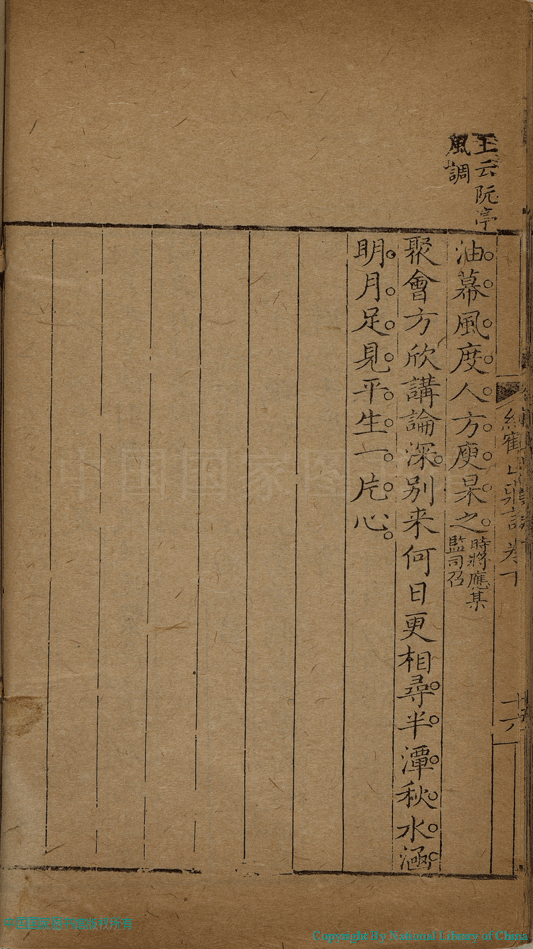 王云阮亭
風調
油幕風度人方庾杲之時將應某
監司召
聚會方欣講論深别来何日更相尋半潭秋水涵
明月足見平生一片心
卷下
十六
中国国家图
Copyright By National Library of China